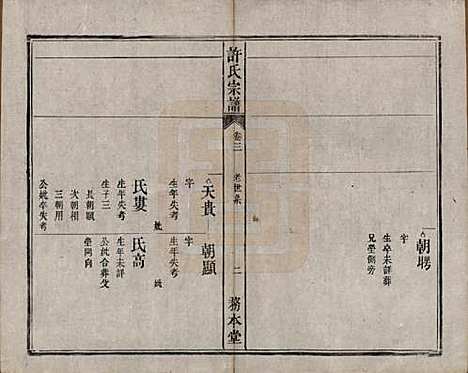 朝聘
字
生卒未詳葬
兄塋側旁
許氏宗譜
卷三
老世系
二
務本堂
天貴
字
生年失考
妣
婁氏
生年失考
生子三
長朝顯
次朝相
三朝用
公妣卒失考
朝顯
字
生年失考
妣
高氏
生年未詳
公妣合葬父
塋同向